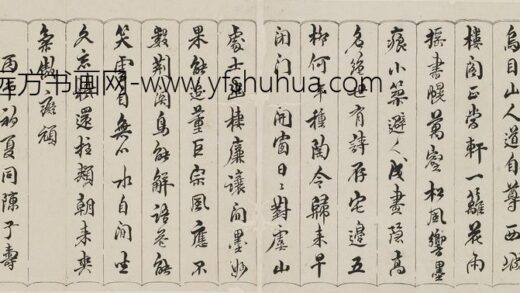 烏目山人道自尊西城
樓閣正當軒一籬花雨
搖書幌萬壑松風響墨
痕小築避人成畫隱高
名絕世有詩存宅邊五
柳何年種陶令歸來早
閉門 開窗日日對虞山
處士幽棲廉讓間墨妙
果能追董巨宗風應不
數荊關鳥能解語
笑雲自無心水自閒
久忘 還 朝來爽
氣
丙 初夏同陳子壽
东方书画网-www.yfshuhua.com